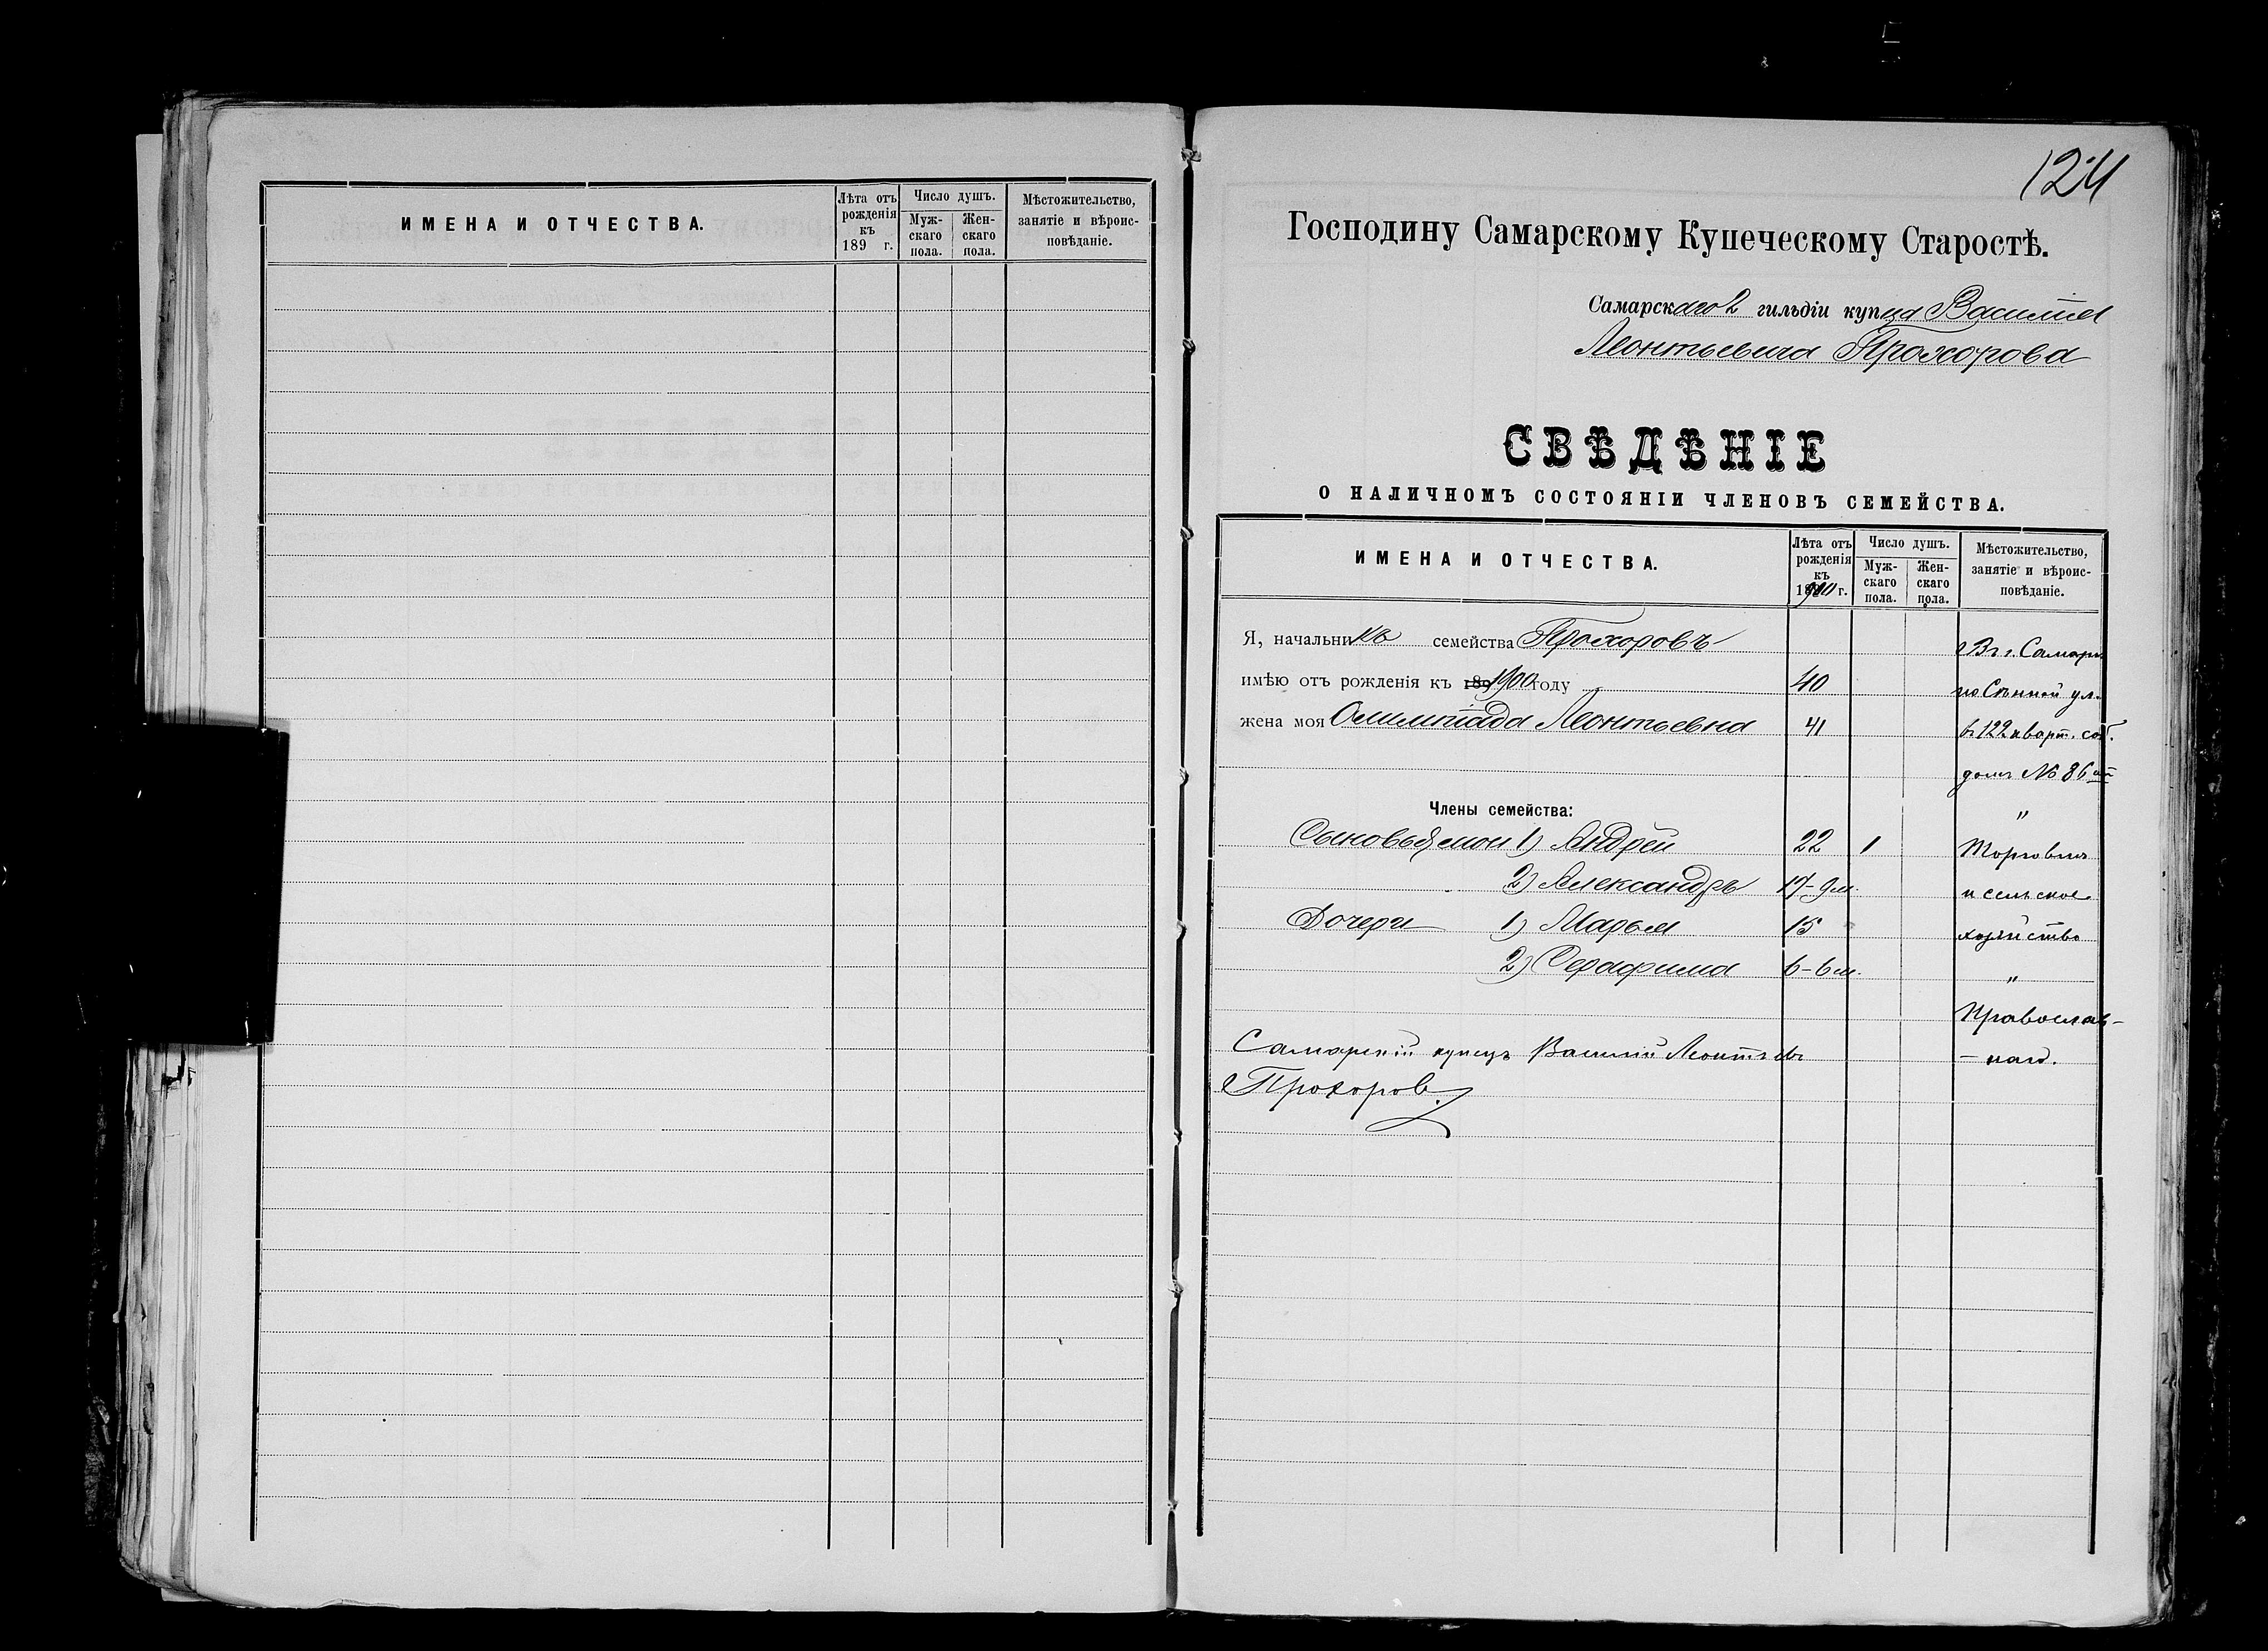 ИМЕНА И ОТЧЕСТВА.
Лѣта отъ рожденія къ 189 г.
Число душъ.
Мужскаго пола.
Женскаго пола.
Мѣстожительство, занятіе и вѣроисповѣданіе.
124
Господину Самарскому Купеческому Старостѣ.
Самарскаго 2 гильдіи купца Василія
Леонтьевича Прохорова
СВѢДѢНІЕ
О НАЛИЧНОМЪ СОСТОЯНІИ ЧЛЕНОВЪ СЕМЕЙСТВА.
ИМЕНА И ОТЧЕСТВА.
Лѣта отъ рожденія къ 1900 г.
Число душъ.
Мужскаго пола.
Женскаго пола.
Мѣстожительство, занятіе и вѣроисповѣданіе.
Я, начальникъ семейства Прохоровъ
Въ г. Самарѣ
имѣю отъ рожденія къ 1900 году 40
по Сѣнной ул.
жена моя Олимпіада Леонтьевна 41
в 122 кварт. соб.
домъ № 86
Члены семейства:
"
Сыновья мои 1) Андрей 22 1
Торговля
2) Александръ 17-9 м.
и сельское
Дочери 1) Марья 15
хозяйство
2) Серафима 6-6 м.
"
Православ-
Самарскій купецъ Василій Леонтьевъ
-наго.
Прохоров.